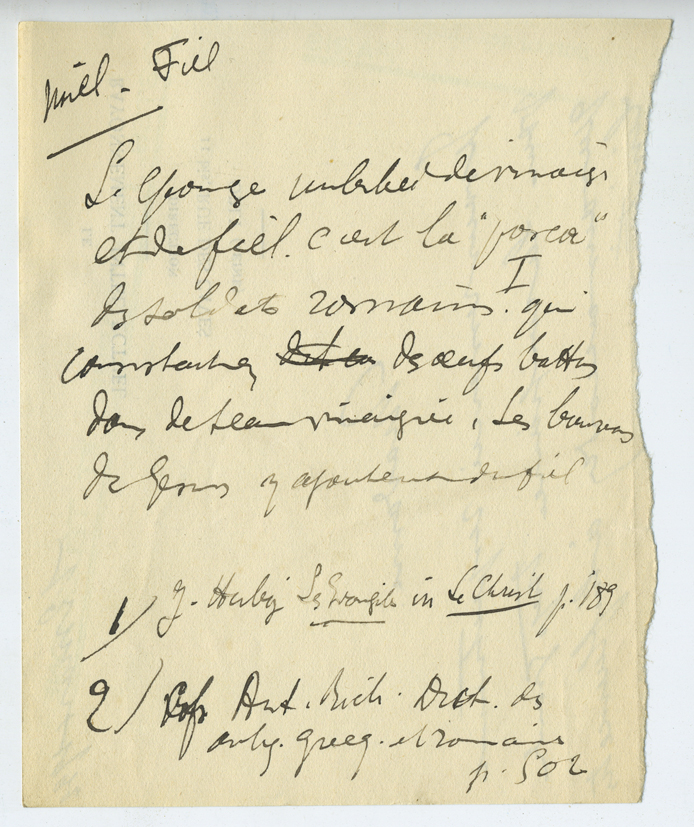 Miel - Fiel
L'éponge imbibée de vinaigre
et de fiel. c'est la "posca"
I
des soldats romains. qui
consistait en des œufs battus
dans de l'eau vinaigrée, Les bourreaux
de Jésus y ajoutèrent du fiel
1/ J. Huby Les Evangiles in Le Christ p. 189
2/ Ant. Rich. Dict. des
antiq. grecq. et romaines
p. 502